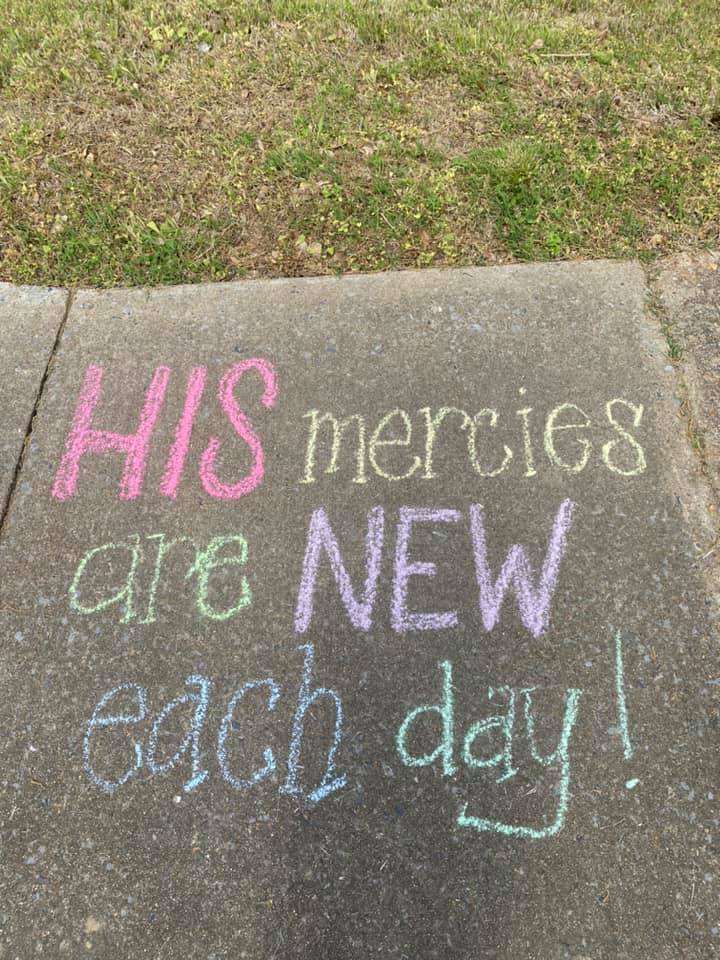 HIS mercies
are NEW
each day!